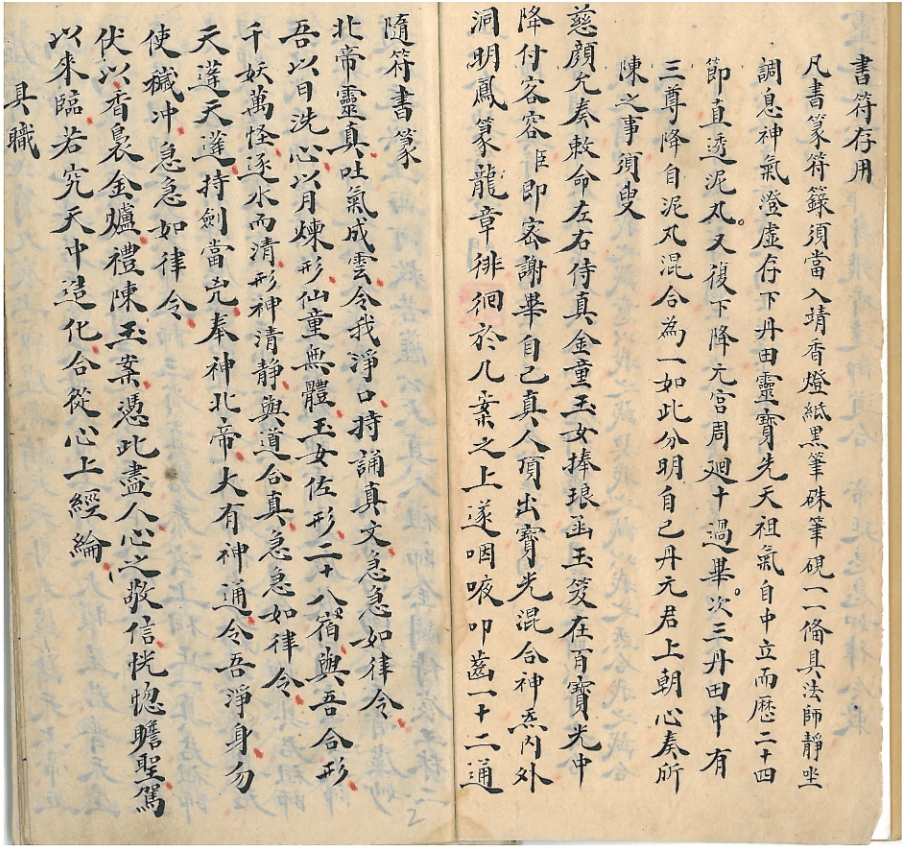 書符存用
凡書篆符籙須當入靖香燈紙黑筆硃筆硯一一俻具法師靜坐
調息神氣澄虛存下丹田靈寶先天祖氣自中立而歷二十四
節直透泥丸。又復下降元宮周廻十過畢次。三丹田中有
三尊降自泥丸混合為一如此分明自己丹元君上朝心奏所
陳之事須臾
慈顏允奏敕命左右侍真金童玉女捧琅函玉笈在百寶光中
降付客容臣即密謝畢自己真人頂出寶光混合神炁內外
洞明鳳篆龍章徘徊於几案之上遂咽唊叩齒一十二通
隨符書篆
北帝靈真吐氣成雲令我淨口持誦真文急急如律令
吾以日洗心以月煉形仙童無體玉女佐形二十八宿與吾合形
千妖萬怪逐水而清形神清靜與道合真急急如律令
天蓬天蓬持劍當兇奉神北帝大有神通令吾淨身勿
使穢冲急急如律令
伏以香裊金爐禮陳玉案憑此盡人心之敬信恍惚瞻聖駕
以來臨若究天中造化合從心上經綸
具職
2